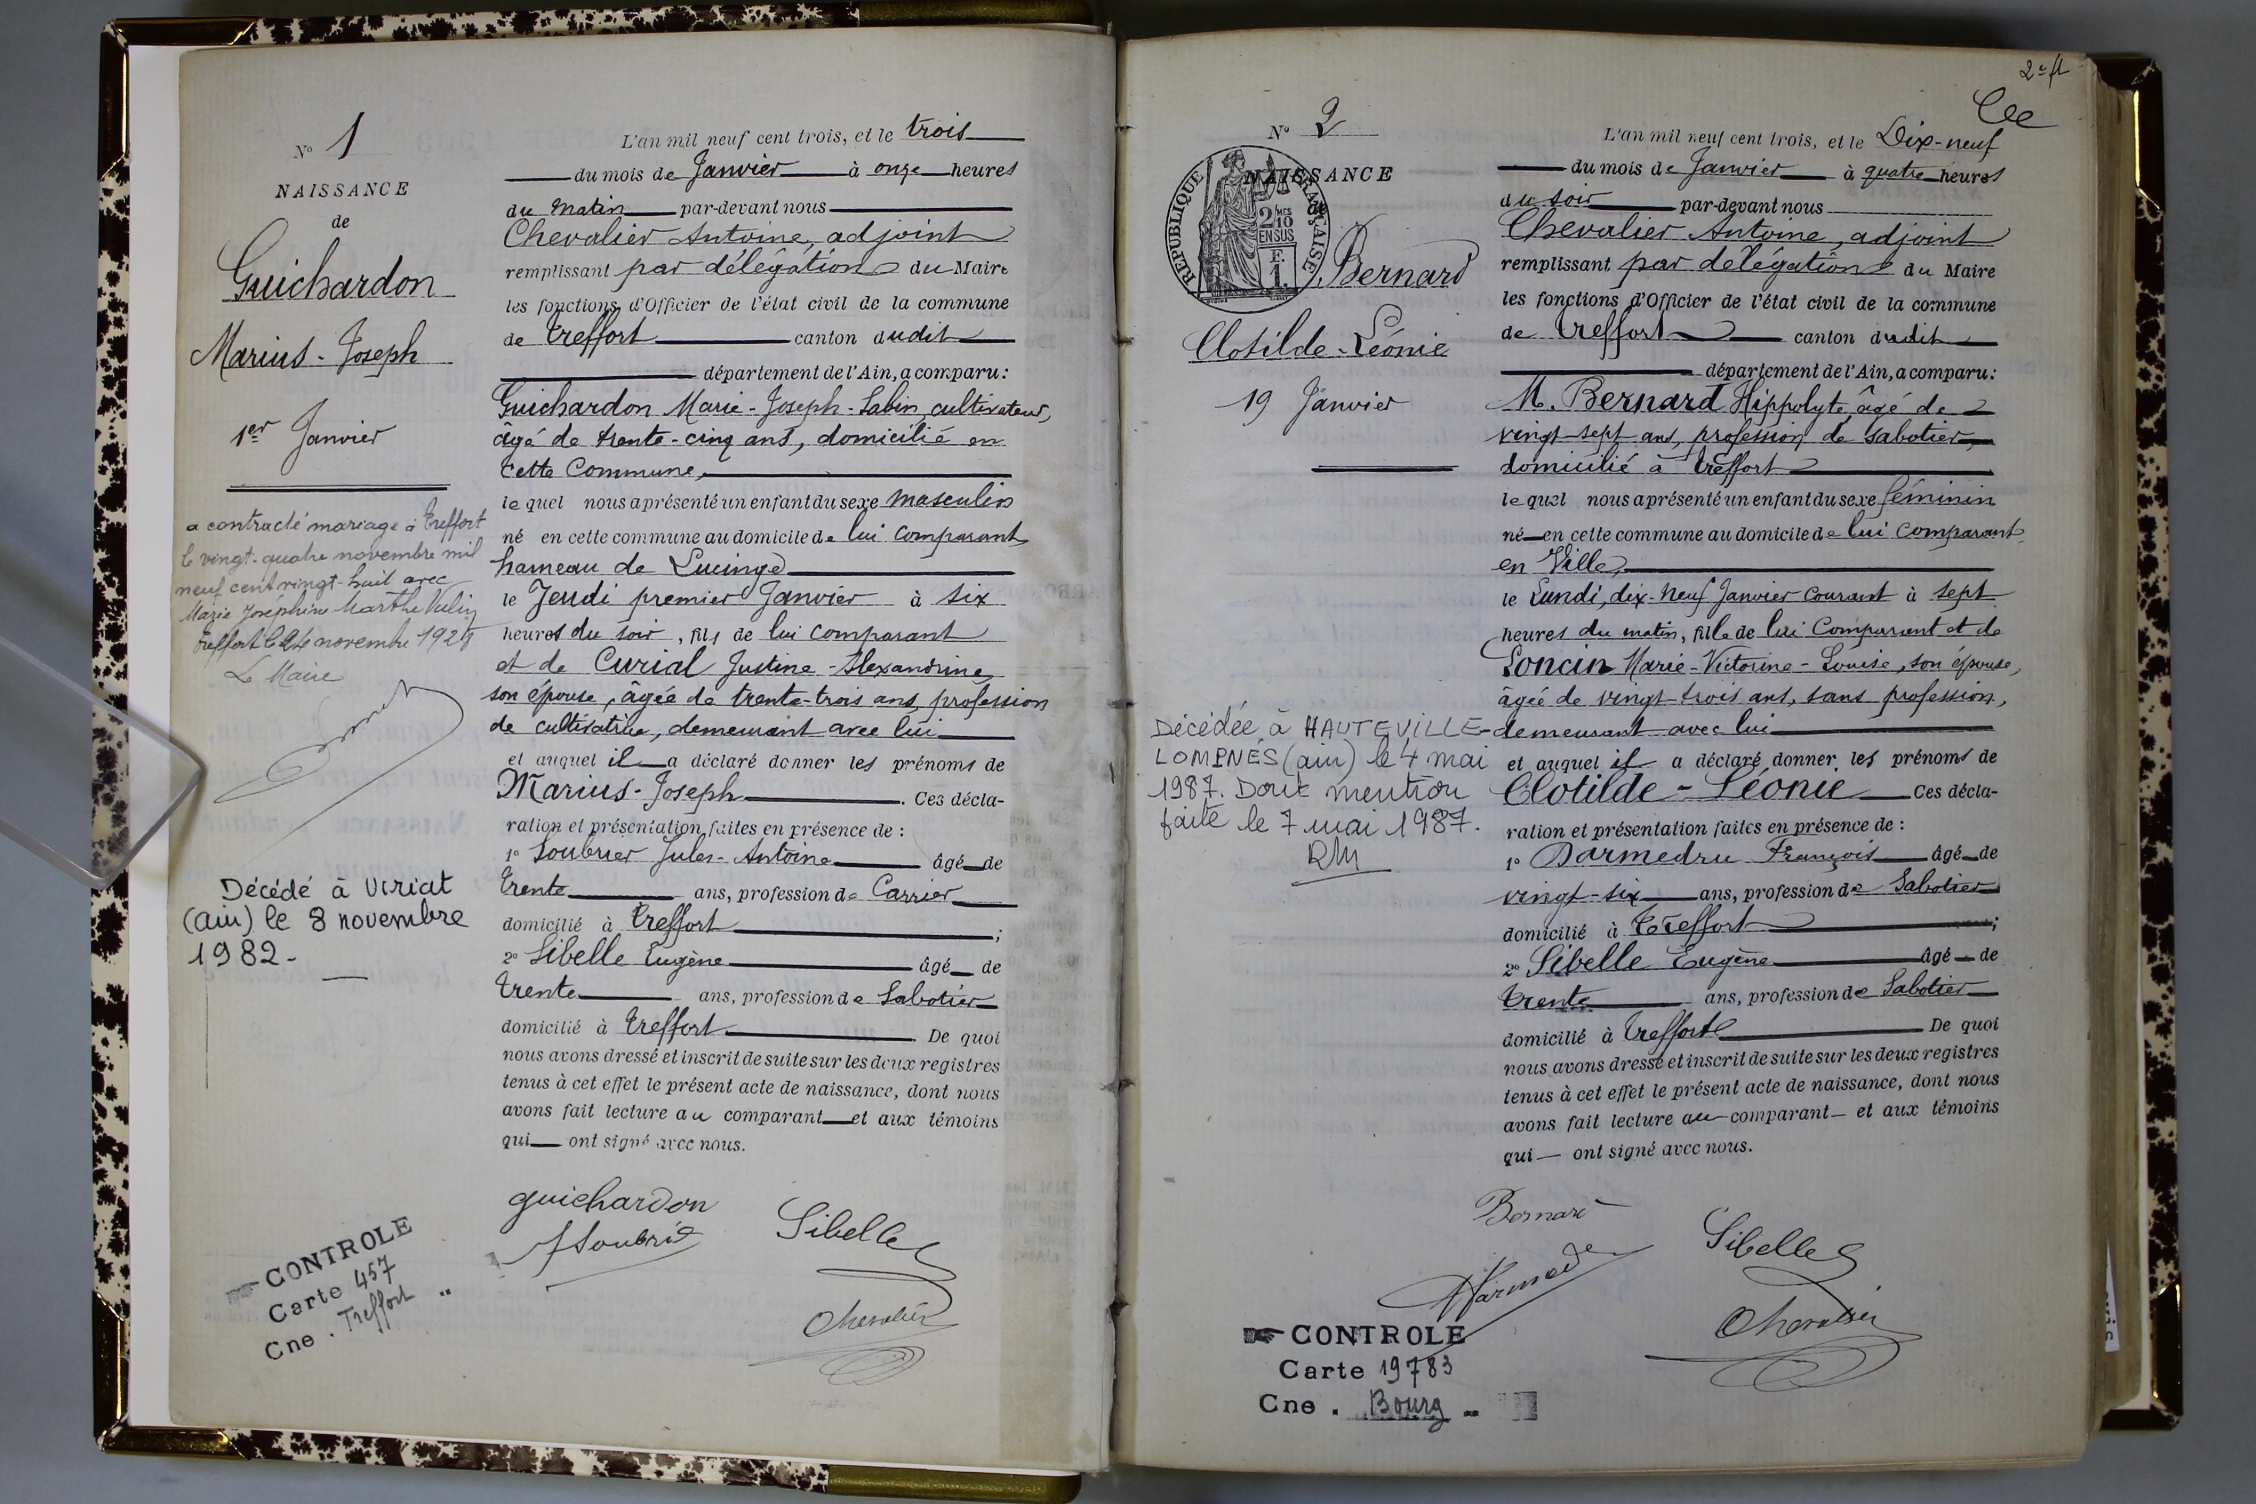 N° 1
NAISSANCE
de
Guichardon
Marius-Joseph
1er Janvier
a contracté mariage à Treffort
le vingt-quatre novembre mil
neuf cent vingt-huit avec
Marie Joséphine Marthe Vulin
Treffort le 24 novembre 1928
Le Maire
Décédé à Viriat
(ain) le 8 novembre
1982-
CONTROLE
Carte 457
Cne. Treffort
L'an mil neuf cent trois, et le trois
du mois de Janvier à onze heures
du matin par-devant nous
Chevalier Antoine, adjoint
remplissant par délégation du Maire
les fonctions d'Officier de l'état civil de la commune
de Treffort canton dudit
département de l'Ain, a comparu:
Guichardon Marie-Joseph-Sabin, cultivateur,
âgé de trente-cinq ans, domicilié en
cette Commune,
lequel nous a présenté un enfant du sexe masculin
né en cette commune au domicile de lui comparant
hameau de Lucinge
le Jeudi premier Janvier à six
heures du soir, fils de lui comparant
et de Curial Justine-Alexandrine
son épouse, âgée de trente-trois ans, profession
de cultivatrice, demeurant avec lui
et auquel il a déclaré donner les prénoms de
Marius-Joseph. Ces décla-
ration et présentation faites en présence de :
1° Soubrier Jules-Antoine âgé de
trente ans, profession de Carrier
domicilié à Treffort ;
2° Sibelle Eugène âgé de
trente ans, profession de Sabotier
domicilié à Treffort. De quoi
nous avons dressé et inscrit de suite sur les deux registres
tenus à cet effet le présent acte de naissance, dont nous
avons fait lecture au comparant et aux témoins
qui ont signé avec nous.
guichardon
Sibelle
Chevalier
2e ft
N° 2
NAISSANCE
de
REPUBLIQUE FRANÇAISE
2/10 EN SUS
F. 1.
Bernard
Clotilde-Léonie
19 Janvier
Décédée à HAUTEVILLE-
LOMPNES (ain) le 4 mai
1987. Dont mention
faite le 7 mai 1987.
CONTROLE
Carte 19783
Cne. Bourg
L'an mil neuf cent trois, et le Dix-neuf
du mois de Janvier à quatre heures
du soir par-devant nous
Chevalier Antoine, adjoint
remplissant par délégation du Maire
les fonctions d'Officier de l'état civil de la commune
de Treffort canton dudit
département de l'Ain, a comparu:
M. Bernard Hippolyte, âgé de
vingt-sept ans, profession de sabotier,
domicilié à Treffort
lequel nous a présenté un enfant du sexe féminin
né en cette commune au domicile de lui comparant
en Ville,
le Lundi, dix-neuf Janvier courant à sept
heures du matin, fille de lui Comparant et de
Loncin Marie-Victorine-Louise, son épouse,
âgée de vingt-trois ans, sans profession,
demeurant avec lui
et auquel il a déclaré donner les prénoms de
Clotilde-Léonie Ces décla-
ration et présentation faites en présence de :
1° Darmedru François âgé de
vingt-six ans, profession de Sabotier
domicilié à Treffort ;
2° Sibelle Eugène âgé de
trente ans, profession de Sabotier
domicilié à Treffort De quoi
nous avons dressé et inscrit de suite sur les deux registres
tenus à cet effet le présent acte de naissance, dont nous
avons fait lecture au comparant et aux témoins
qui ont signé avec nous.
Bernard
Sibelle
Chevalier